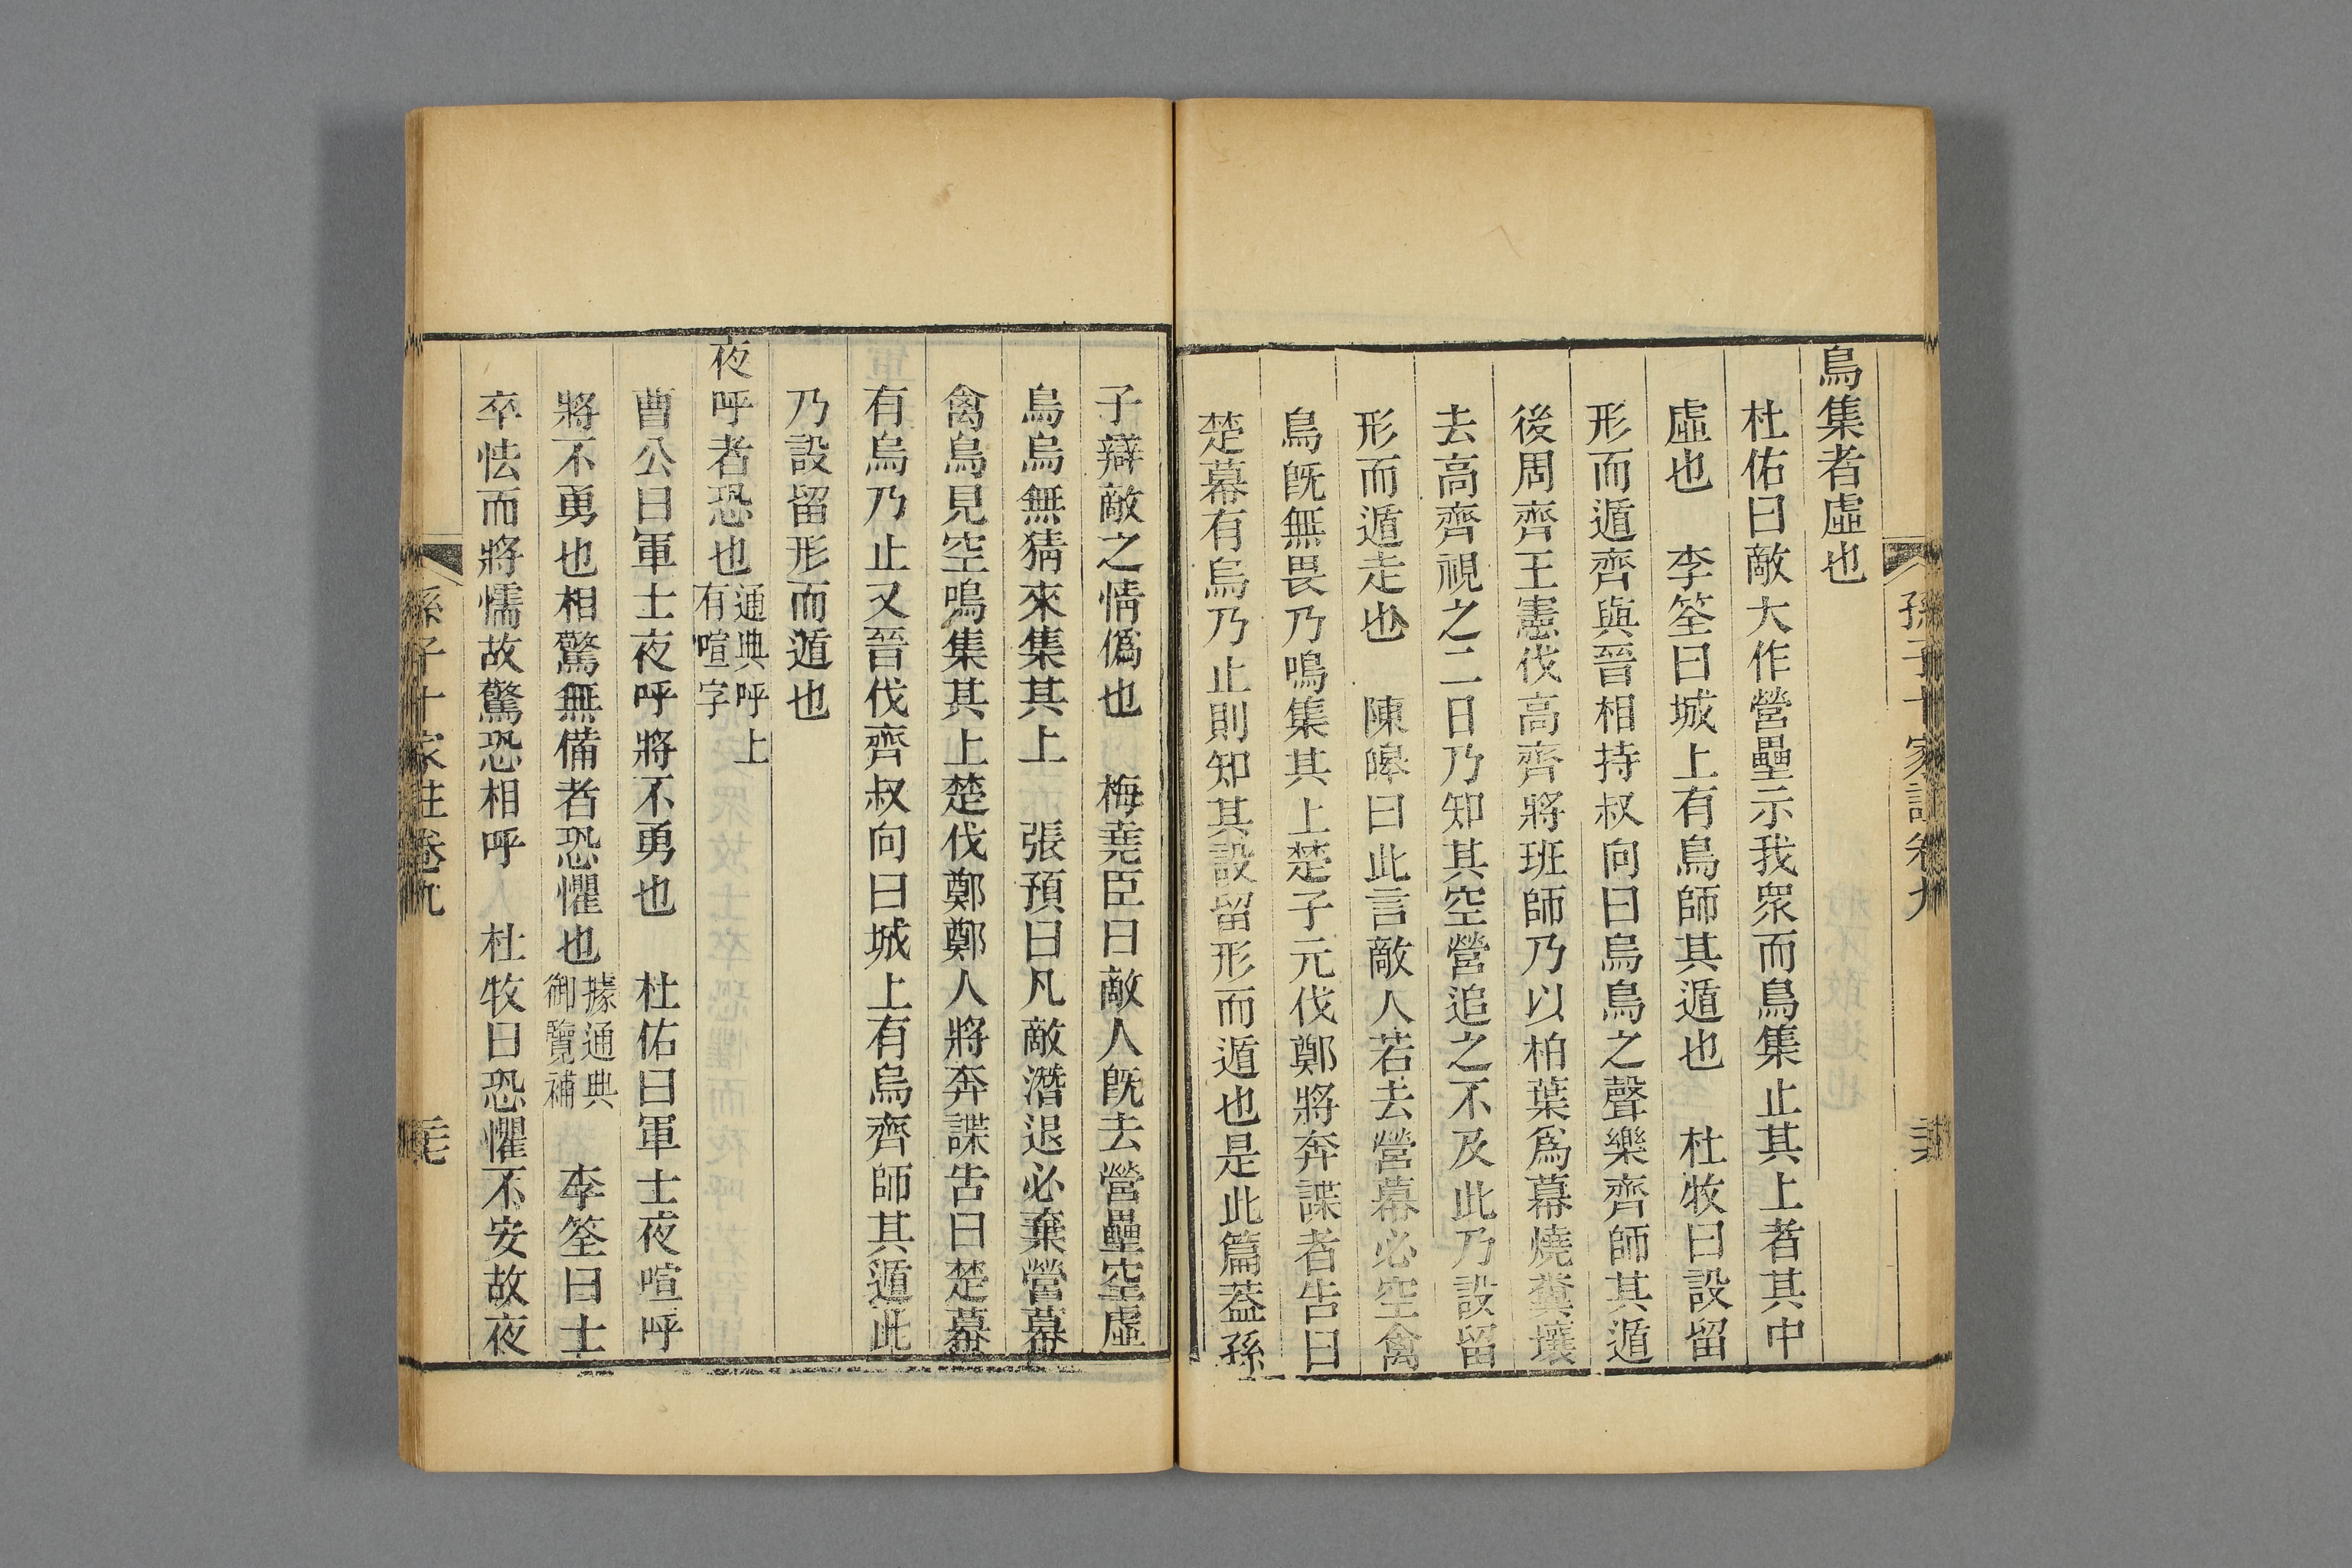 孫子十家註卷九
鳥集者虛也
杜佑曰敵大作營壘示我衆而鳥集止其上者其中
虛也　李筌曰城上有鳥師其遁也　杜牧曰設留
形而遁齊與晉相持叔向曰烏鳥之聲樂齊師其遁
後周齊王憲伐高齊將班師乃以柏葉爲幕燒糞壤
去高齊視之二日乃知其空營追之不及此乃設留
形而遁走也　陳皞曰此言敵人若去營幕必空禽
鳥既無畏乃鳴集其上楚子元伐鄭將奔諜者告曰
楚幕有烏乃止則知其設留形而遁也是此篇葢孫
子辯敵之情僞也　梅堯臣曰敵人既去營壘空虛
鳥烏無猜來集其上　張預曰凡敵潛退必棄營幕
禽鳥見空鳴集其上楚伐鄭鄭人將奔諜告曰楚幕
有烏乃止又晉伐齊叔向曰城上有烏齊師其遁此
乃設留形而遁也
夜呼者恐也通典呼上有喧字
曹公曰軍士夜呼將不勇也　杜佑曰軍士夜喧呼
將不勇也相驚無備者恐懼也據通典御覽補　李筌曰士
卒怯而將懦故驚恐相呼　杜牧曰恐懼不安故夜
孫子十家註卷九